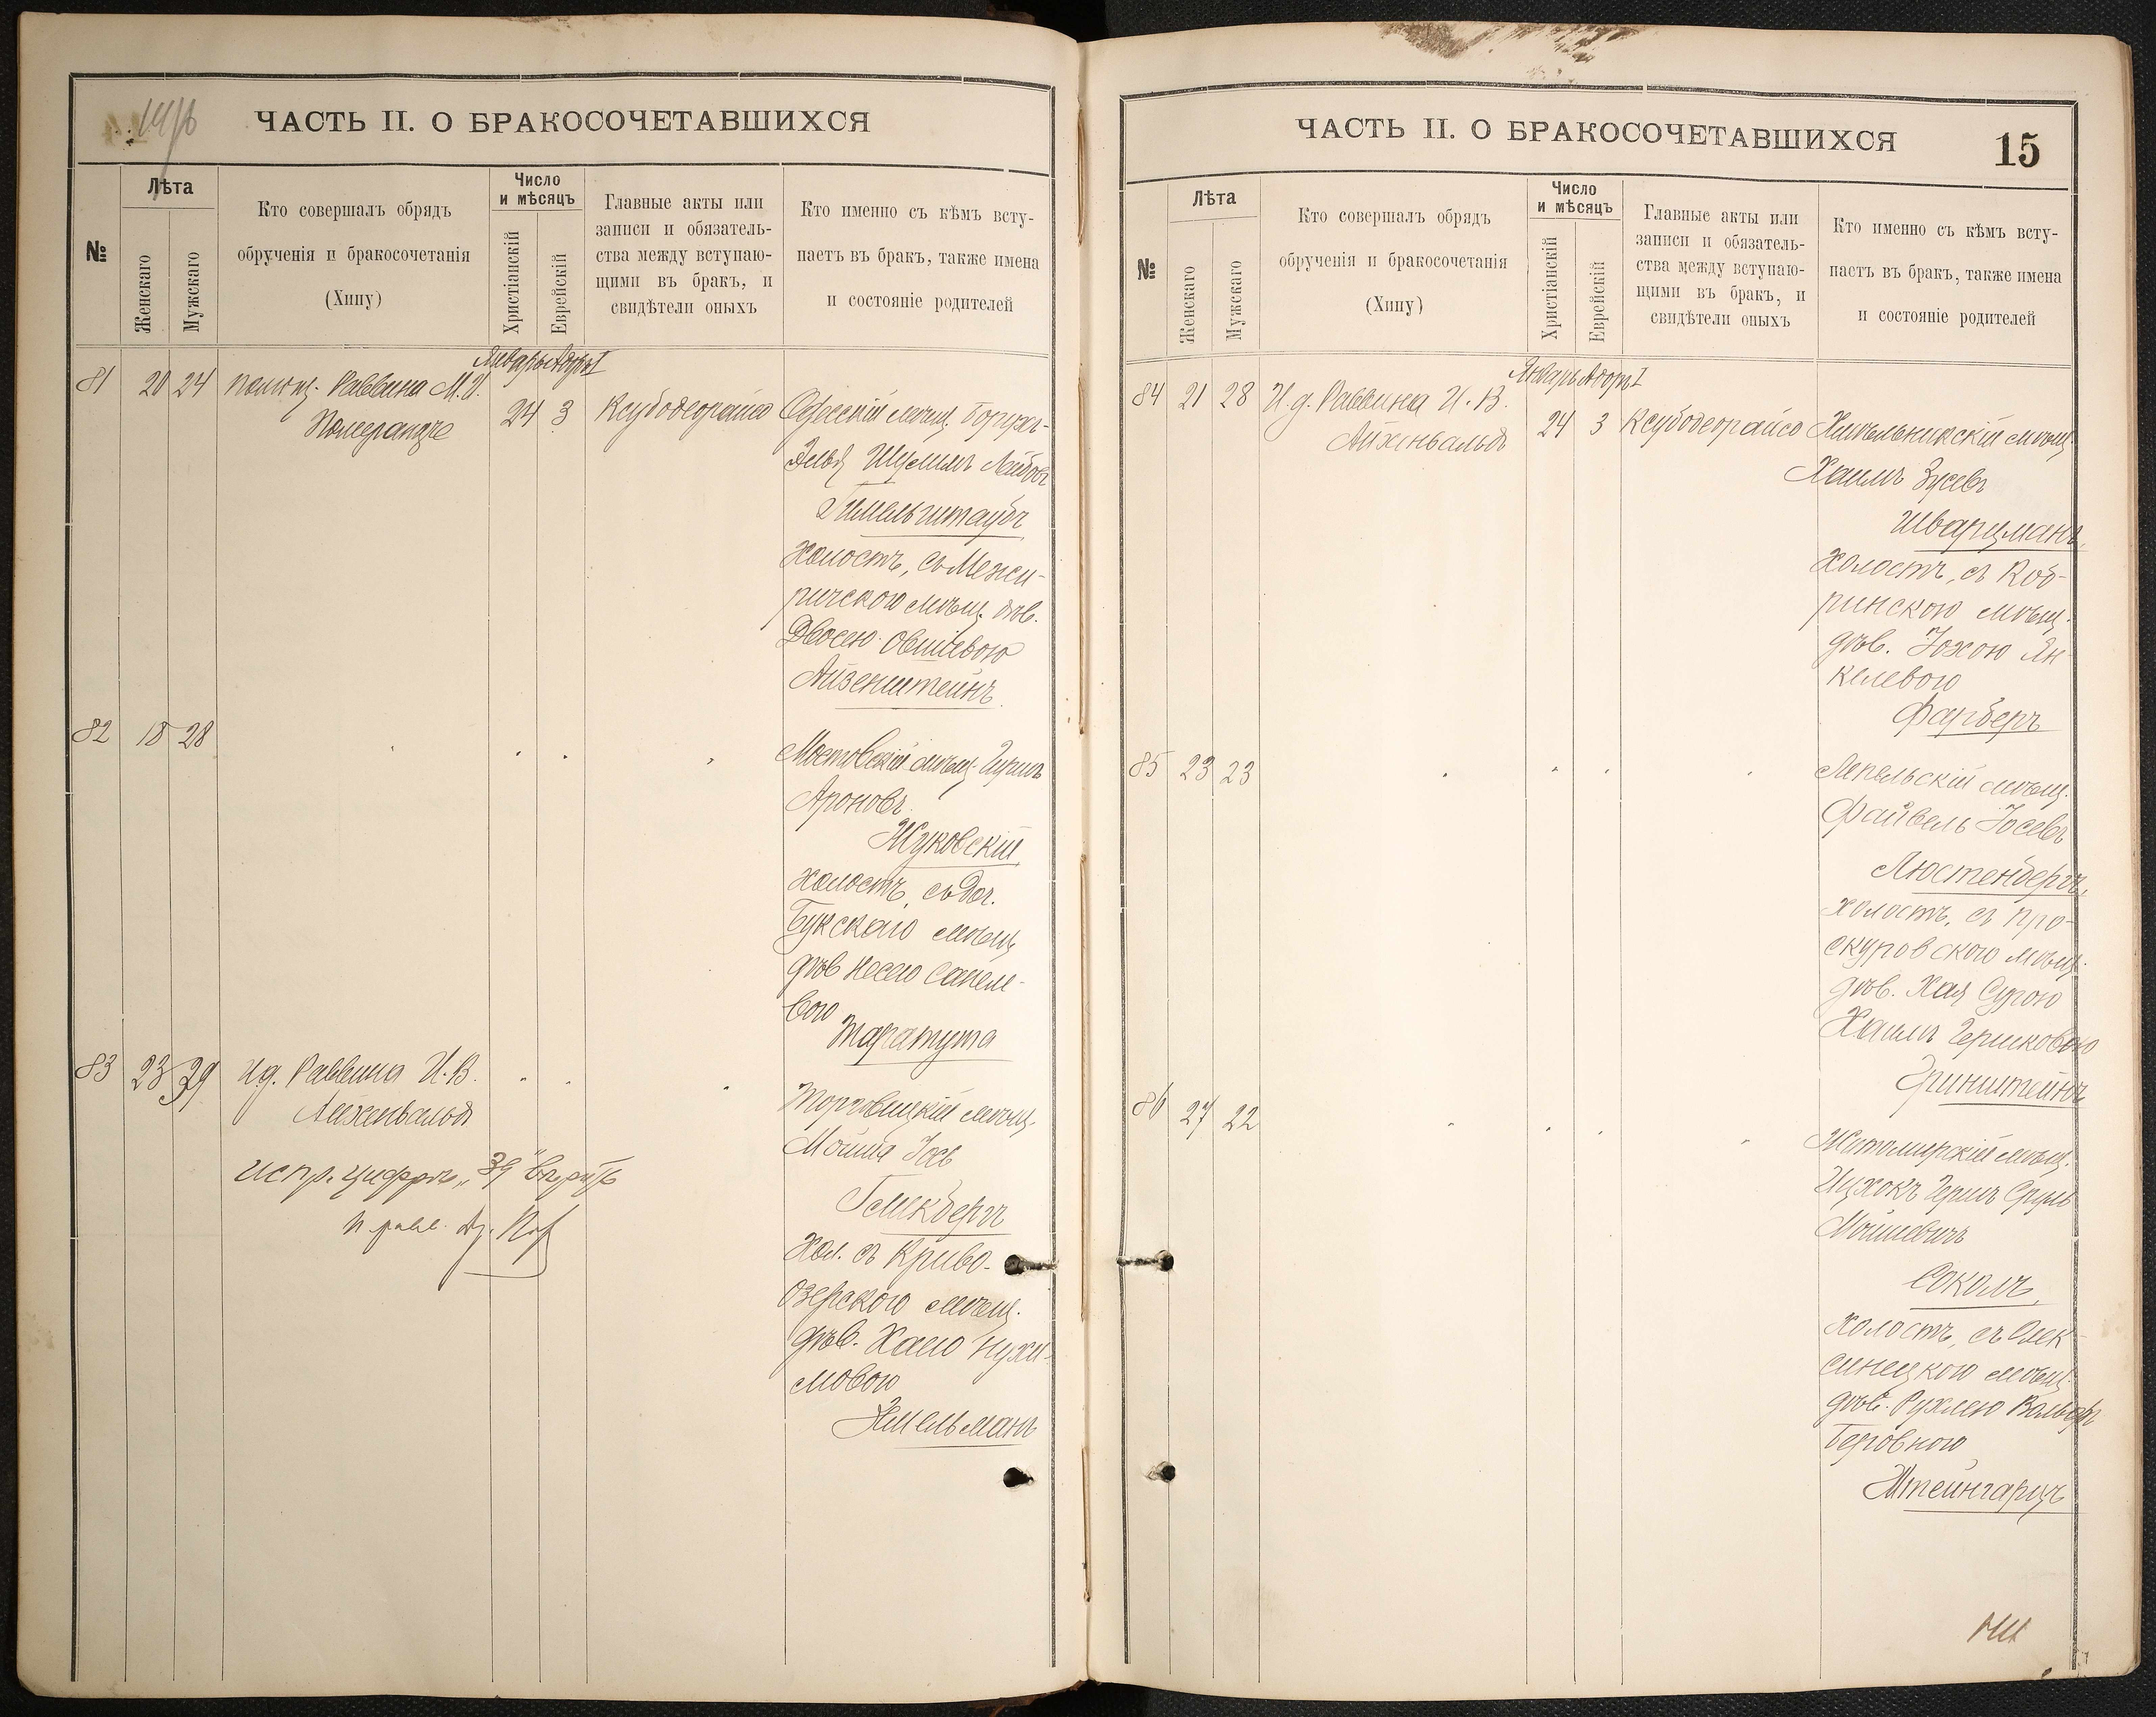 ЧАСТЬ II. О БРАКОСОЧЕТАВШИХСЯ
№
Лѣта
Женскаго
Мужскаго
Кто совершалъ обрядъ
обрученія и бракосочетанія
(Хипу)
Число
и мѣсяцъ
Христіанскій
Еврейскій
Главные акты или
записи и обязатель-
ства между вступаю-
щими въ бракъ, и
свидѣтели оныхъ
Кто именно съ кѣмъ всту-
паетъ въ бракъ, также имена
и состояніе родителей
Январь Адоръ I
81 20 24 помощ. Раввина М.И.
Померанцъ
24 3 Ксубодеорайсо
Одесскій мѣщ. Борухъ-
Зельд Шулимъ Лейбовъ
Гимельштаубъ
холостъ, съ Межи-
ричскою мѣщ. дѣв.
Двосею Овшіевою
Айзенштейнъ
82 18 28
Мостовскій мѣщ. Гершъ
Ароновъ
Жуковскій
холостъ, съ доч.
Букскаго мѣщ.
дѣв Несею Санеле-
вою
Таратута
83 23 39 И.д. Раввина И.В.
Айхенвальдъ
Торговицкій мѣщ.
Мойша Іось
Гликбергъ
Хол. съ Криво-
Озерскою мѣщ.
дѣв. Хаею Нухи-
мовою
Хмельманъ
испр. цифръ „39"
ЧАСТЬ II. О БРАКОСОЧЕТАВШИХСЯ
15
№
Лѣта
Женскаго
Мужскаго
Кто совершалъ обрядъ
обрученія и бракосочетанія
(Хипу)
Число
и мѣсяцъ
Христіанскій
Еврейскій
Главные акты или
записи и обязатель-
ства между вступаю-
щими въ бракъ, и
свидѣтели оныхъ
Кто именно съ кѣмъ всту-
паетъ въ бракъ, также имена
и состояніе родителей
Январь Адоръ I
84 21 28 И.д. Раввина И.В.
Айхенвальдъ
24 3 Ксубодеорайсо
Хмѣльникскій мѣщ
Хаимъ Зусевъ
Шварцманъ,
холостъ, съ Коб-
ринскою мѣщ.
дѣв. Іохою Ян-
келевою
Фарберъ
85 23 23
Лепельскій мѣщ.
Файвель Іосевъ
Люстенбергъ,
холостъ, съ Про-
скуровскою мѣщ.
дѣв. Хая Сурою
Хаимъ Гершковою
Гринштейнъ
86 27 22
Житомирскій мѣщ.
Ицхокъ Гершъ Сруль
Мошевичъ
Соколъ,
холостъ, съ Олек-
синецкою мѣщ.
дѣв. Рухлею Вольфъ
Беровною
Штейнгарцъ